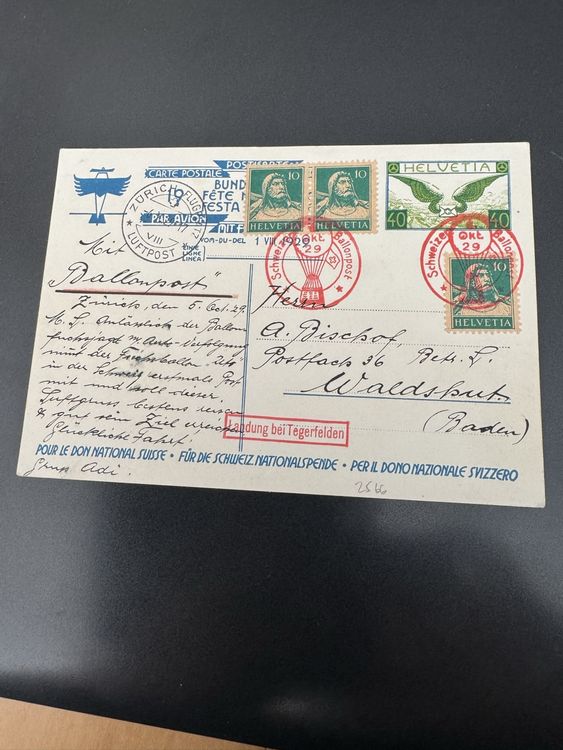 POSTKARTE
CARTE POSTALE
BUND
FÊTE N
FESTA
PAR AVION
MIT F
VOM-DU-DEL 1 VIII 1929
ZÜRICH FLUG
LUFTPOST
VIII
LINEA
10 10
HELVETIA HELVETIA
HELVETIA
40 40
Schweizer Ballonpost
Okt.
29
Schweizer Ballonpost
Okt.
29
10
HELVETIA
Mit
"Ballonpost"
Zürich, den 5. Oct. 29.
M. L. Anlässlich der Ballon
fuchsjagd m Auto-Verfolgung
nimmt der Fuchsballon
in der Schweiz erstmals Post
mit und soll dieser
Luftgruss bestens
& gut sein Ziel erreichen
Glückliche Fahrt!
Gruss Adi.
Herrn
A. Bischof
Postfach 36 Betr. L.
Waldshut
(Baden)
Landung bei Tegerfelden
POUR LE DON NATIONAL SUISSE • FÜR DIE SCHWEIZ. NATIONALSPENDE • PER IL DONO NAZIONALE SVIZZERO